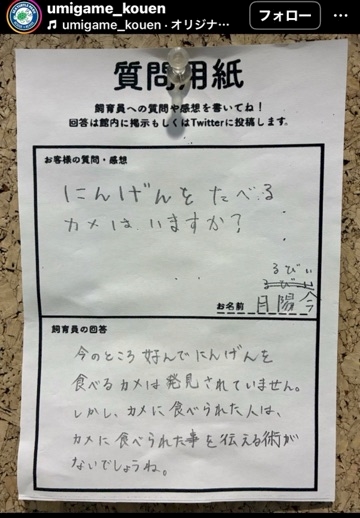 umigame_kouen
♫ umigame_kouen・オリジナ…
フォロー
質問用紙
飼育員への質問や感想を書いてね！
回答は館内に掲示もしくはTwitterに投稿します。
お客様の質問・感想
にんげんを たべる
カメは いますか？
るびい
お名前 月陽今
飼育員の回答
今のところ 好んで にんげんを
食べる カメは 発見 されていません。
しかし、カメに 食べられた 人は、
カメに 食べられた事を 伝える 術が
ないでしょうね。